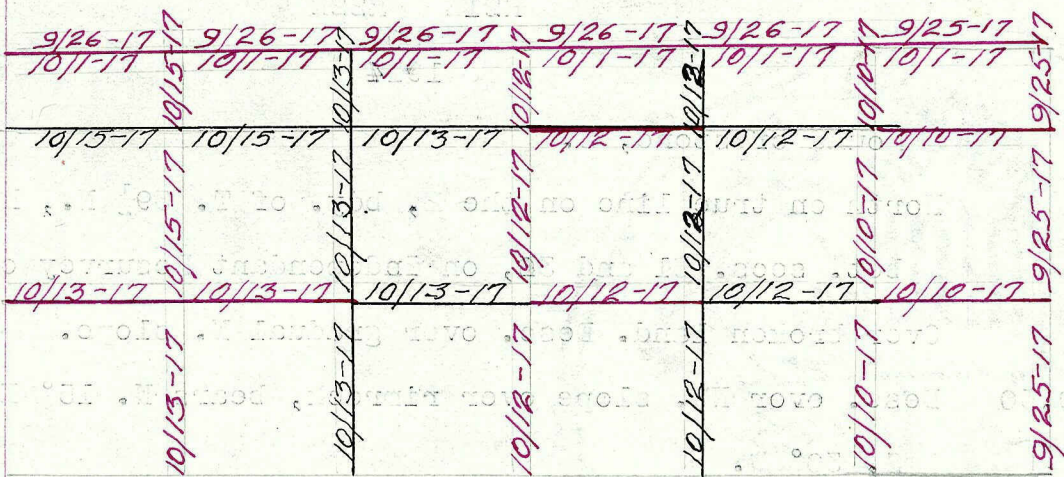 9/26-17 9/26-17 9/26-17 9/26-17 9/26-17 9/25-17
10/1-17 10/15-17 10/1-17 10/13-17 10/1-17 10/12-17 10/1-17 10/12-17 10/1-17 10/10-17 10/1-17 9/25-17
10/15-17 10/15-17 10/13-17 10/12-17 10/12-17 10/10-17
10/15-17 10/13-17 10/12-17 10/12-17 10/10-17 9/25-17
10/13-17 10/13-17 10/13-17 10/12-17 10/12-17 10/10-17
10/13-17 10/13-17 10/12-17 10/12-17 10/10-17 9/25-17